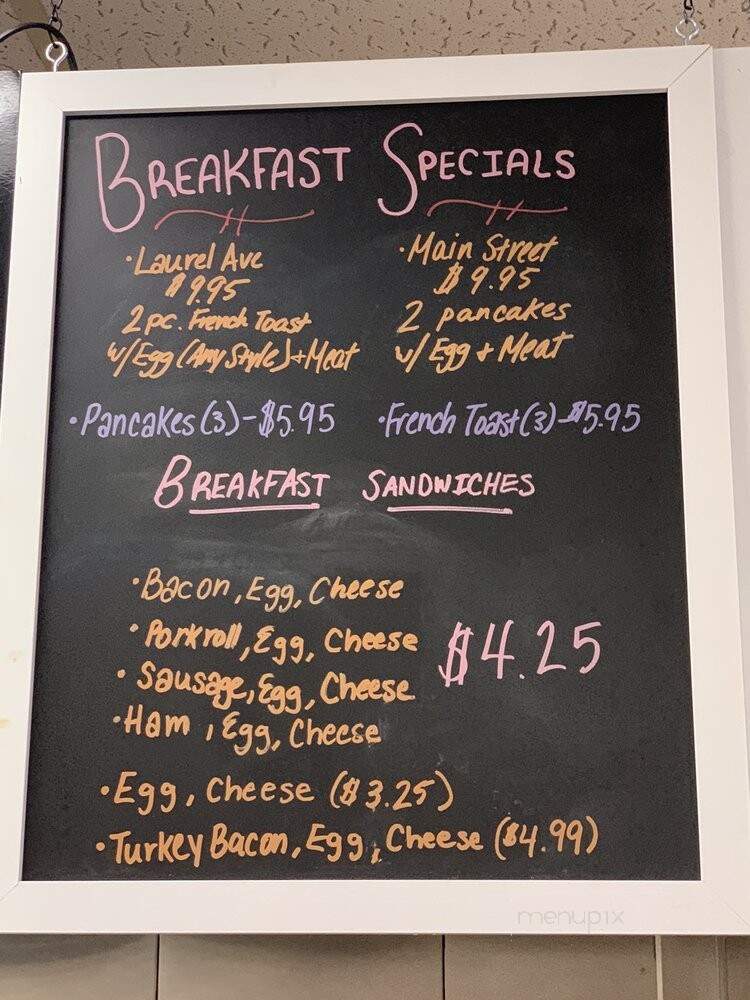 BREAKFAST SPECIALS
• Laurel Ave
$9.95
2 pc. French Toast
w/ Egg (Any Style) + Meat
• Main Street
$9.95
2 pancakes
w/ Egg + Meat
• Pancakes (3) - $5.95
• French Toast (3) - $5.95
BREAKFAST SANDWICHES
• Bacon, Egg, Cheese
• Porkroll, Egg, Cheese
• Sausage, Egg, Cheese
• Ham, Egg, Cheese
$4.25
• Egg, Cheese ($3.25)
• Turkey Bacon, Egg, Cheese ($4.99)
menupix